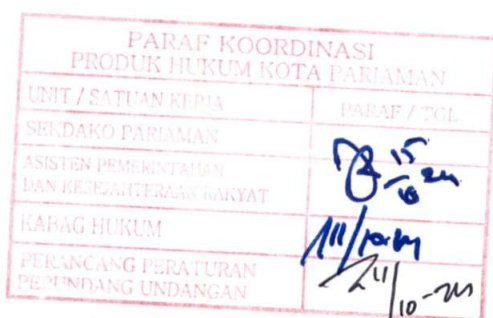 PARAF KOORDINASI
PRODUK HUKUM KOTA PARIAMAN
UNIT / SATUAN KERJA PARAF / TGL
SEKDAKO PARIAMAN
ASISTEN PEMERINTAHAN
DAN KESEJAHTERAAN RAKYAT
15
10
KABAG HUKUM
PERANCANG PERATURAN
PERUNDANG UNDANGAN
11/10-24